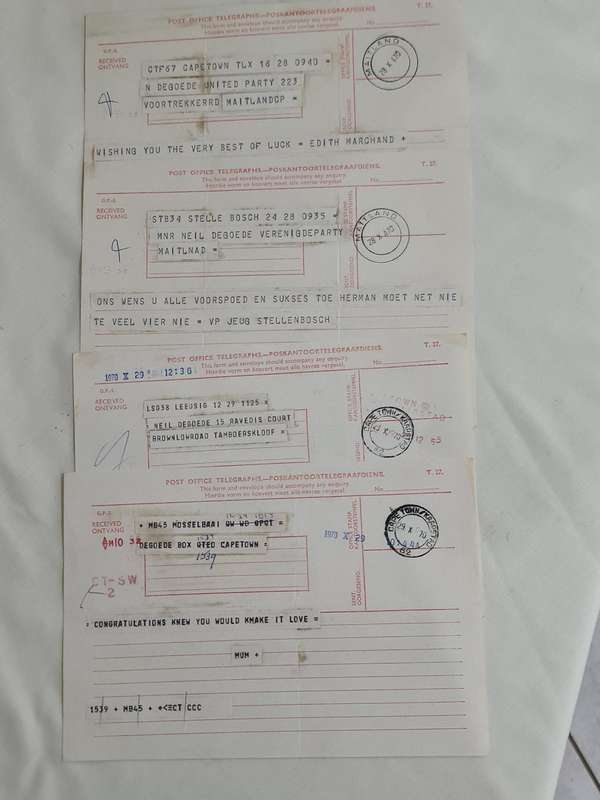 POST OFFICE TELEGRAPHS.—POSKANTOORTELEGRAAFDIENS.
T. 17.
This form and envelope should accompany any enquiry.
Hierdie vorm en koevert moet alle navrae vergesel.
No.
G.P.-S.
RECEIVED
ONTVANG
CTF67 CAPETOWN TLX 16 28 0940 =
N DEGOEDE UNITED PARTY 223
VOORTREKKERRD MAITLANDCP =
MAITLAND
28 X 1970
WISHING YOU THE VERY BEST OF LUCK = EDITH MARCHAND +
POST OFFICE TELEGRAPHS.—POSKANTOORTELEGRAAFDIENS.
T. 17.
This form and envelope should accompany any enquiry.
Hierdie vorm en koevert moet alle navrae vergesel.
No.
G.P.-S.
RECEIVED
ONTVANG
STB34 STELLE BOSCH 24 28 0935 =
MNR NEIL DEGOEDE VERENIGDEPARTY
MAITLNAD =
MAITLAND
28 X 1970
ONS WENS U ALLE VOORSPOED EN SUKSES TOE HERMAN MOET NET NIE
TE VEEL VIER NIE = VP JEUG STELLENBOSCH
POST OFFICE TELEGRAPHS.—POSKANTOORTELEGRAAFDIENS.
T. 17.
This form and envelope should accompany any enquiry.
Hierdie vorm en koevert moet alle navrae vergesel.
No.
1970 X 29 12:30
G.P.-S.
RECEIVED
ONTVANG
LSD38 LEEUSIG 12 29 1125 =
NEIL DEGOEDE 15 RAVEDIS COURT
BROWNLOWROAD TAMBOERSKLOOF =
CAPE TOWN/KAAPSTAD
POST OFFICE TELEGRAPHS.—POSKANTOORTELEGRAAFDIENS.
T. 17.
This form and envelope should accompany any enquiry.
Hierdie vorm en koevert moet alle navrae vergesel.
No.
G.P.-S.
RECEIVED
ONTVANG
+ MB45 MOSSELBAAI
DEGOEDE BOX QTED CAPETOWN =
1539
1970 X 29
CAPE TOWN/KAAPSTAD
29 X 70
62
CT-SW
2
= CONGRATULATIONS KNEW YOU WOULD KMAKE IT LOVE =
MUM +
1539 + MB45 + +<ΞCT CCC